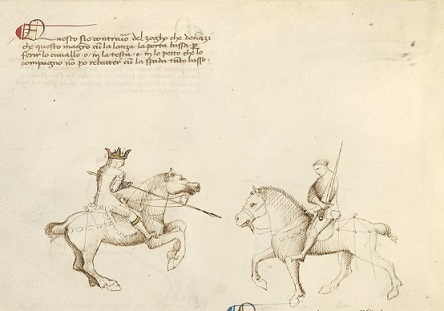 Questo sie contrario del zogho che denazi
che questo magro cum la lanza la porta bassa per
ferir lo cavallo o in la testa o in lo petto che lo
compagno non po rebatter cum la spada tanto basso.